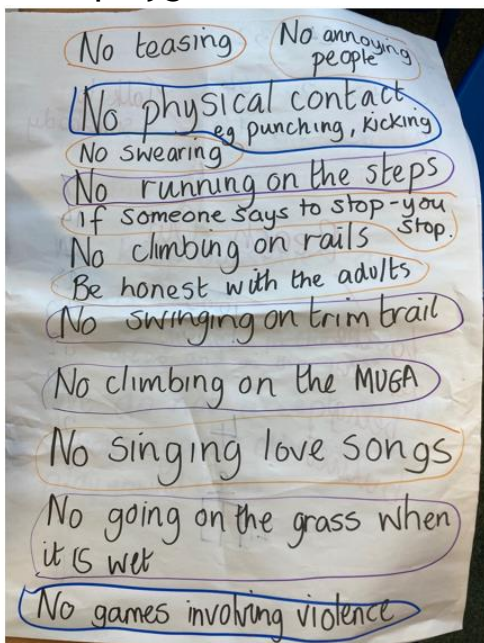 No teasing
No annoying
people
No physical contact
eg punching, kicking
No swearing
No running on the steps
If someone says to stop - you
stop.
No climbing on rails
Be honest with the adults
No swinging on trim trail
No climbing on the MUGA
No singing love songs
No going on the grass when
it is wet
No games involving violence